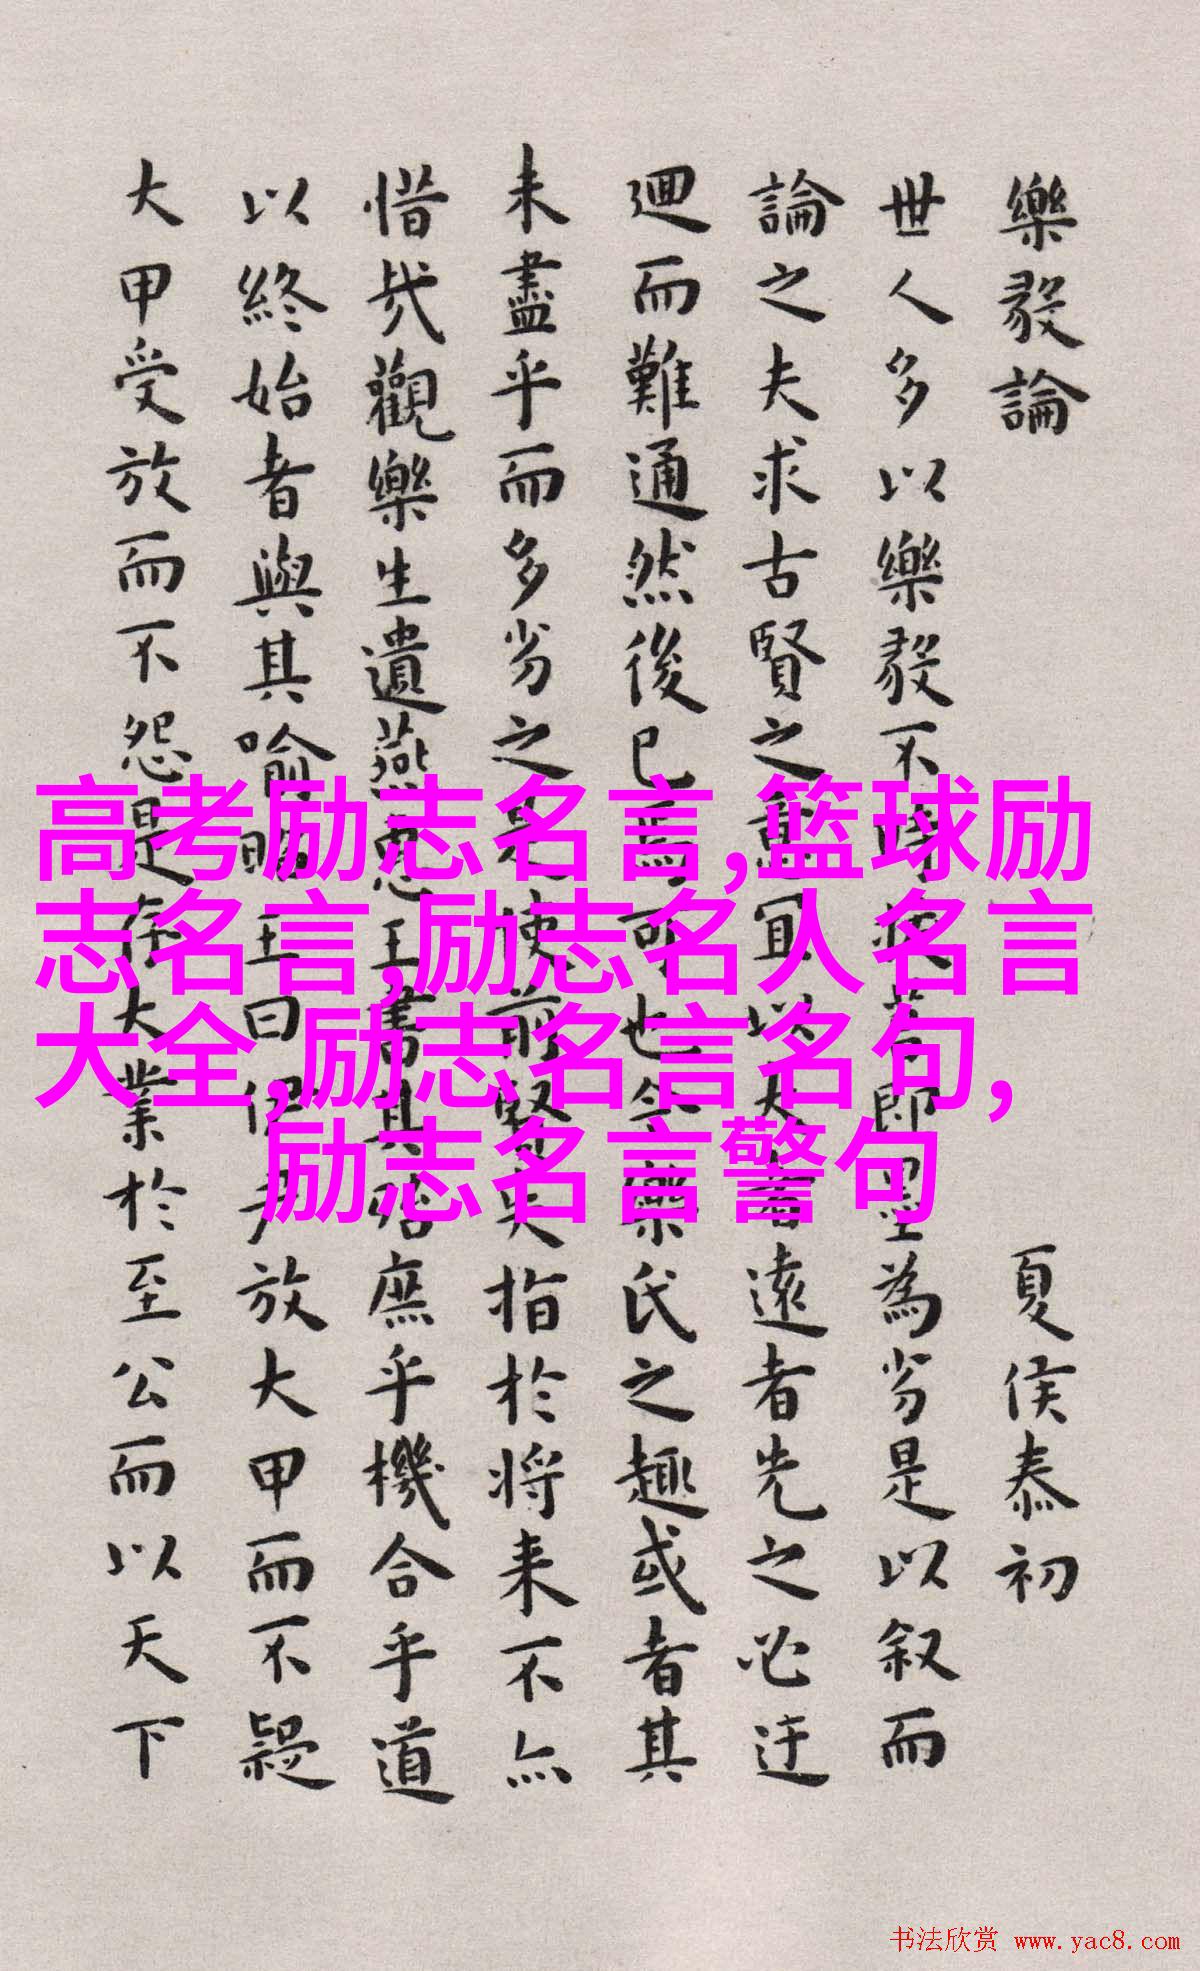 樂毅論 夏侯泰初
世人多以樂毅不時拔莒即墨為劣是以叙而
論之夫求古賢之意宜以大者遠者先之必迂
迴而難通然後已焉可也今樂氏之趣或者其
未盡乎而多劣之是使前賢失指於将来不亦
惜哉觀樂生遺燕惠王書其殆庶乎機合乎道
以終始者與其喻昭王曰伊尹放大甲而不疑
大甲受放而不怨是存大業於至公而以天下
高考励志名言,篮球励
志名言,励志名人名言
大全,励志名言名句,
励志名言警句
书法欣赏 www.yac8.com